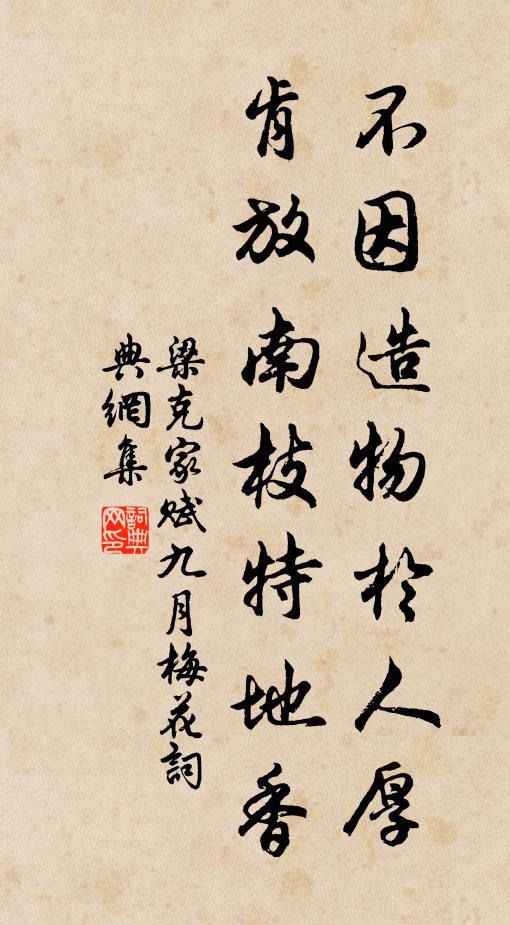 不因造物於人厚
肯放南枝特地香
梁克家賦九月梅花詞
典網集
詞典網印